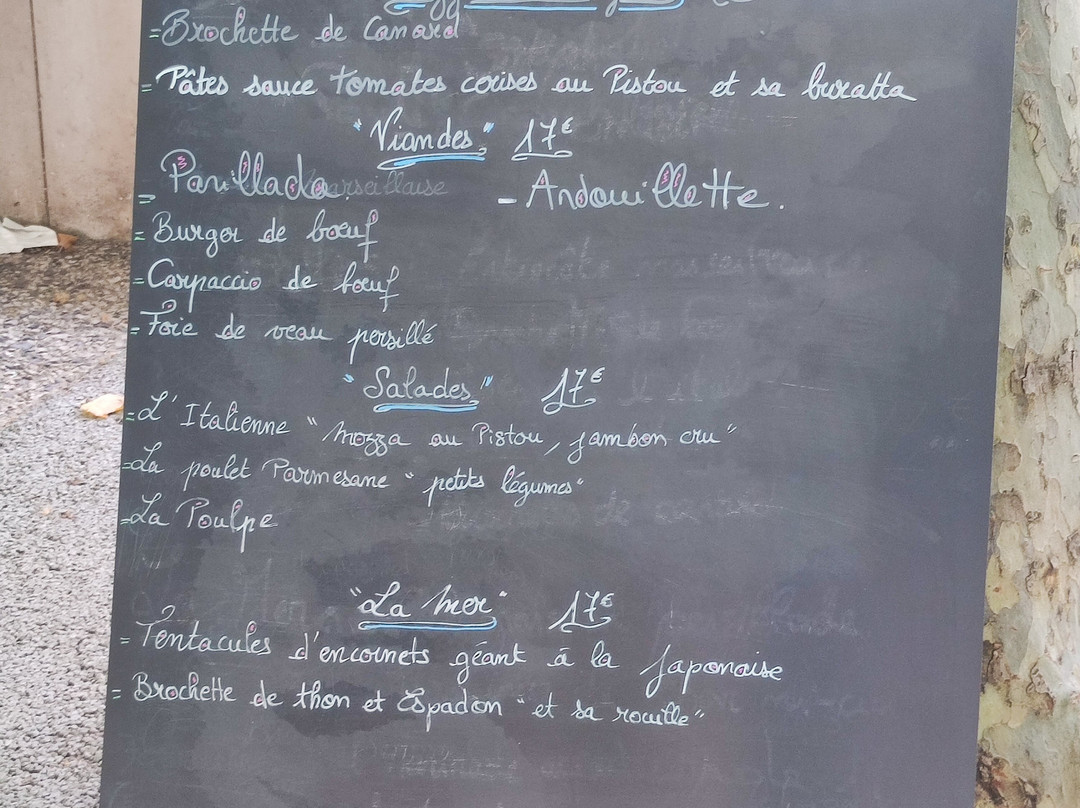 =Brochette de Canard
= Pâtes sauce tomates cerises au Pistou et sa buratta
"Viandes" 17€
= Parillada - Andouillette.
= Burger de boeuf
=Carpaccio de boeuf
= Foie de veau persillé
"Salades" 17€
=L'Italienne "mozza au Pistou, jambon cru"
=La poulet Parmesane "petits légumes"
=La Poulpe
"La mer" 17€
= Tentacules d'encornets géant à la japonaise
= Brochette de thon et Espadon "et sa rouille"